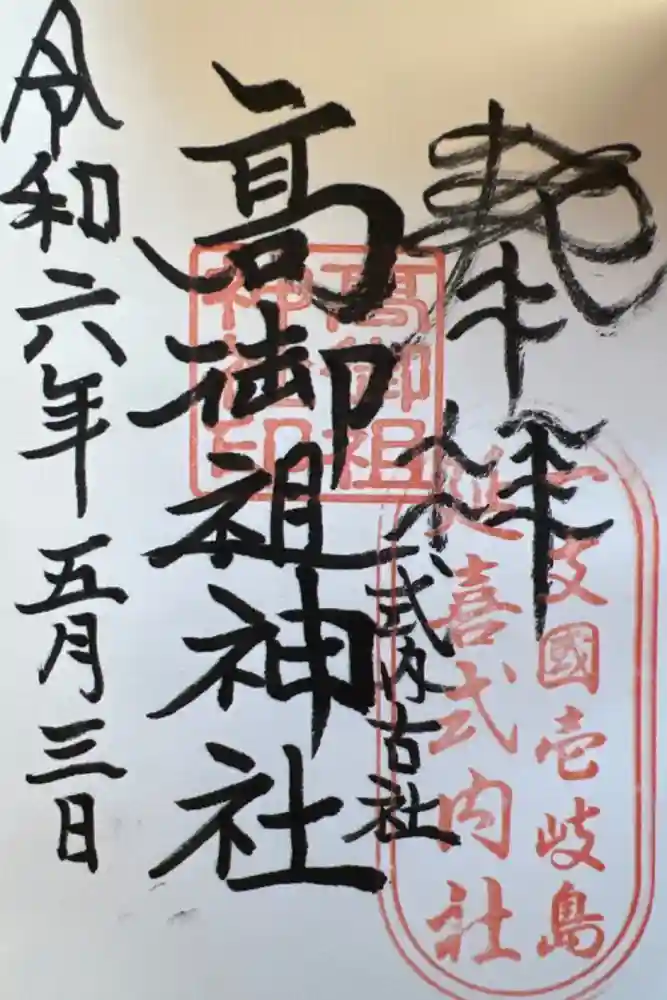 奉拝
一支國壱岐島
延喜式内社
式内古社
高御祖神社
高御祖
神社印
令和六年五月三日